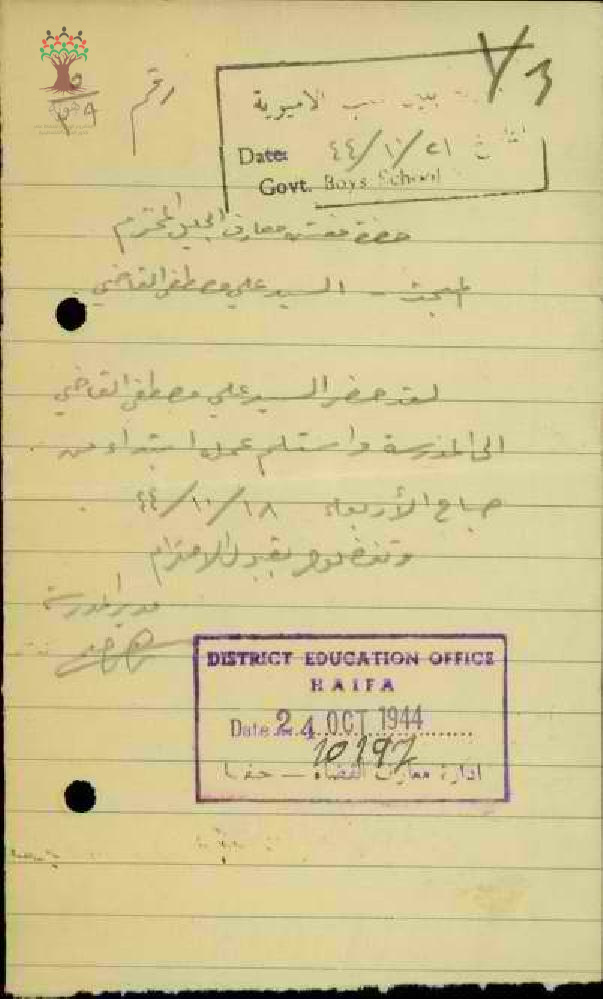 رقم
الاميرية
Date: ٤٤/١٠/٢١
Govt. Boys School
حضرة مفتش معارف الجليل المحترم
المبحث - السيد علي مصطفى القاضي
لقد حضر السيد علي مصطفى القاضي
الى المدرسة واستلم عمله ابتداء من
صباح الأربعاء ٤٤/١٠/١٨
وتفضلوا بقبول الاحترام
مدير المدرسة
DISTRICT EDUCATION OFFICE
HAIFA
Date 24 OCT 1944
10197
ادارة معارف القضاء - حيفا